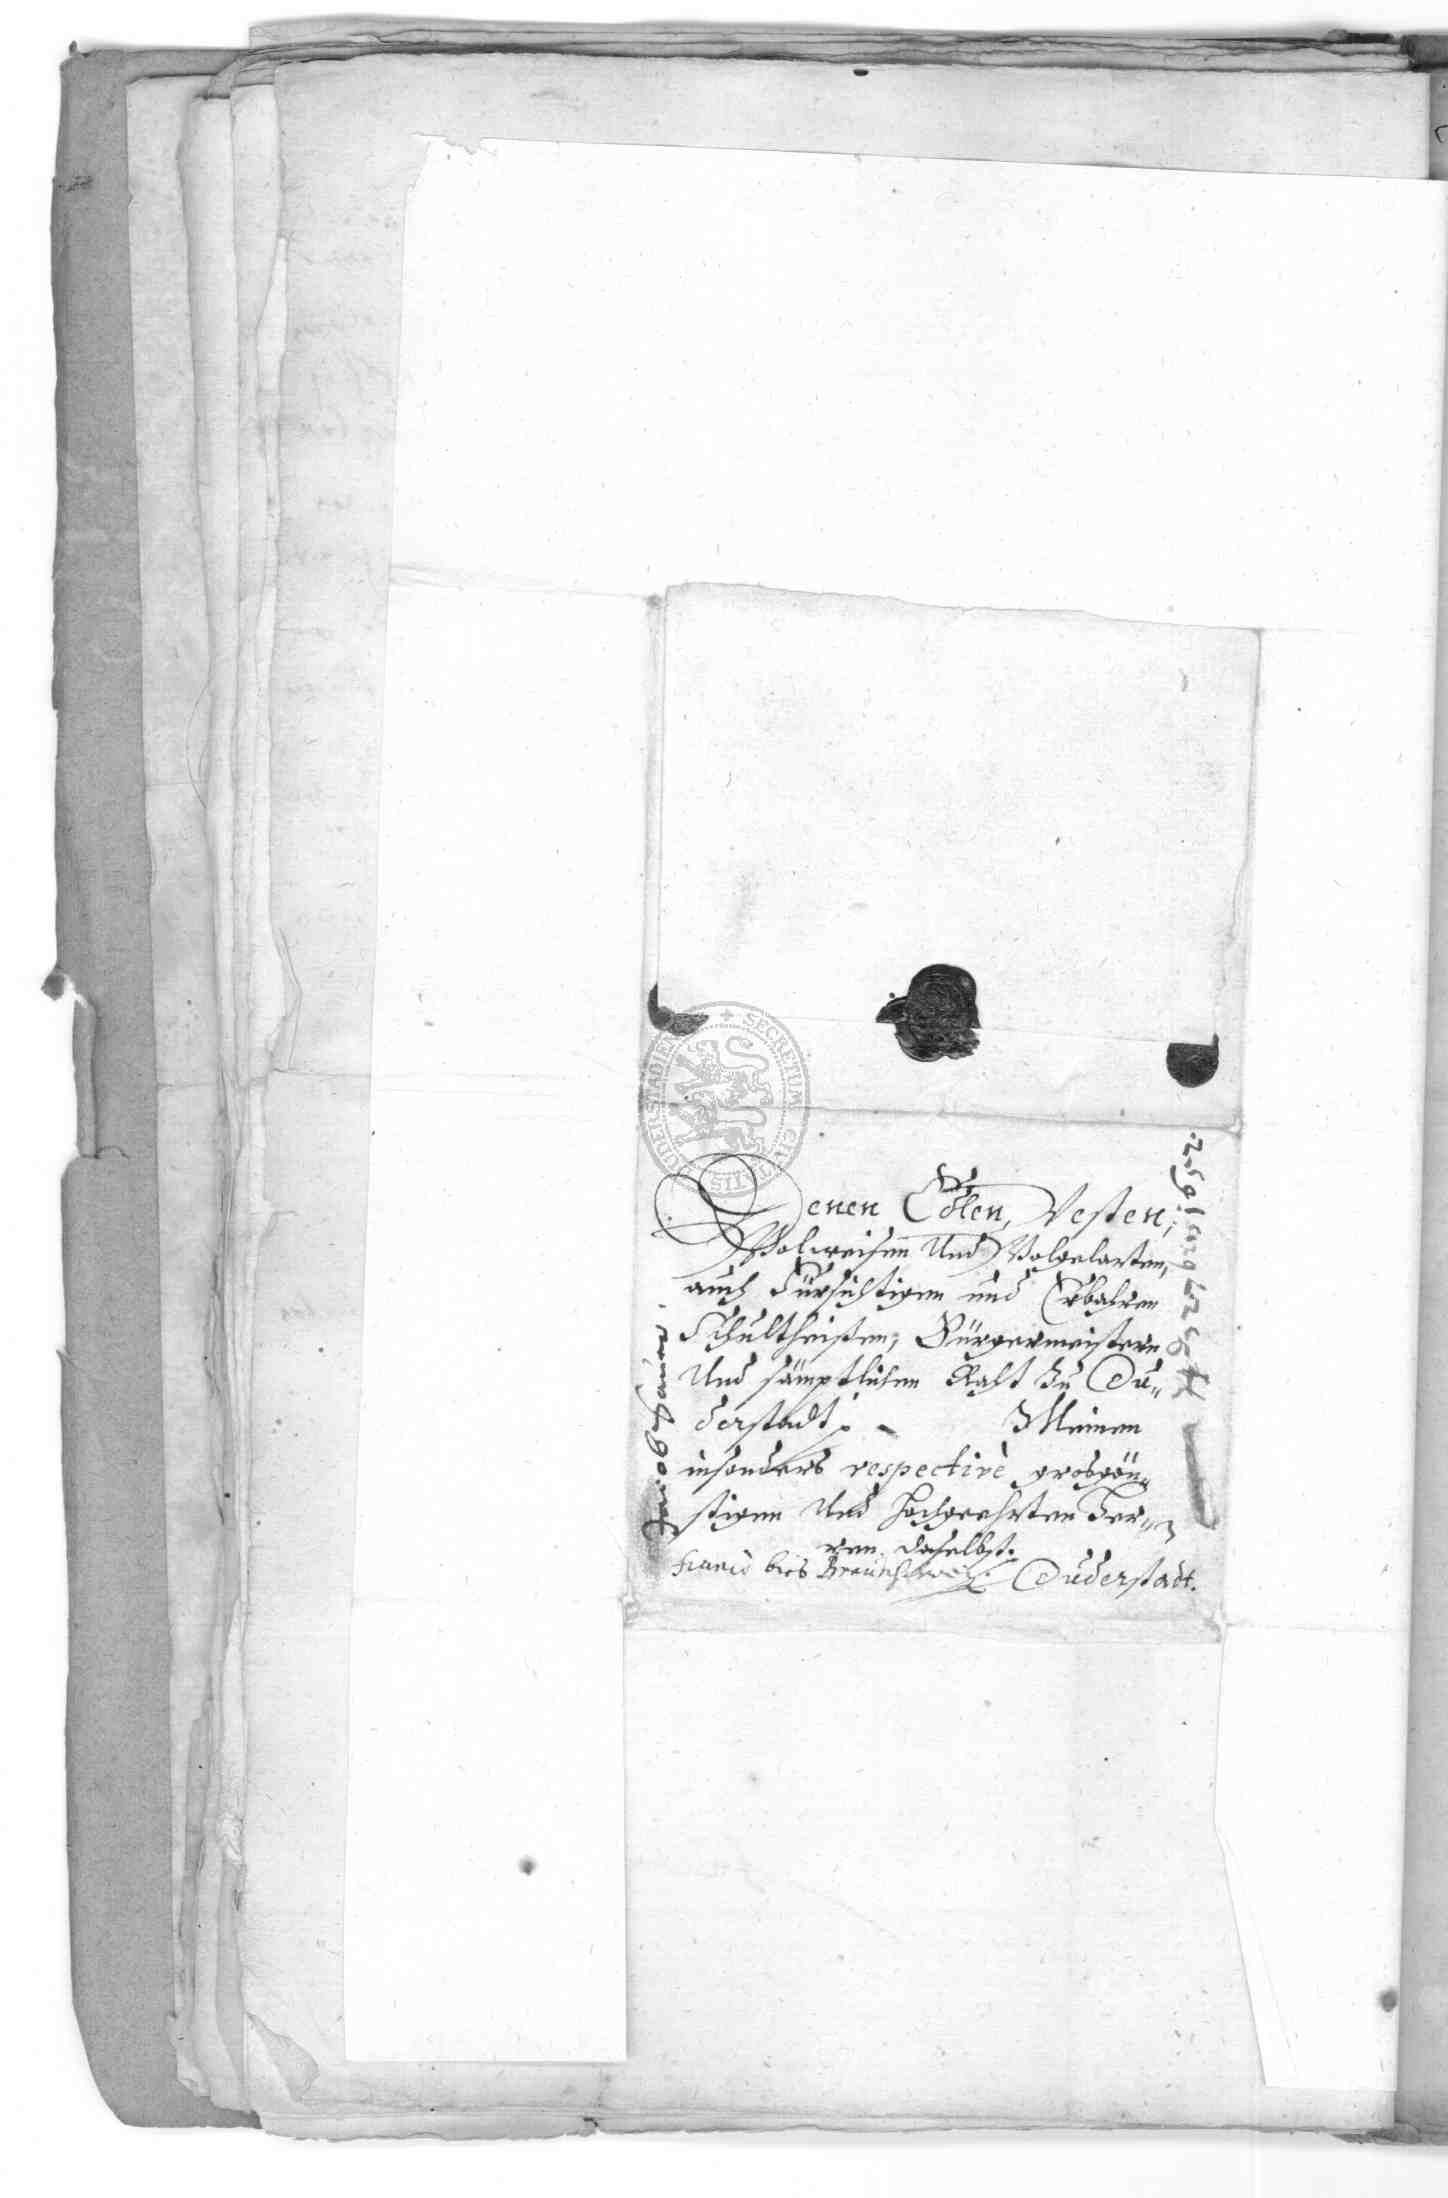 Denen Edlen, Vesten,
Wolweisen Und Wolgelarten,
auch Fürsichtigen und Erbahren
Schultheisten, Bürgermeistern
Und sämptlichen Raht zu Du„
derstadt. Meinen
insonders respectivè grosgön„
stigen Und Hochgeehrten Her„
ren daselbst.
franco bies Braunschweig. Duderstadt.
SECRETUM CIVITATIS DUDERSTADIEN